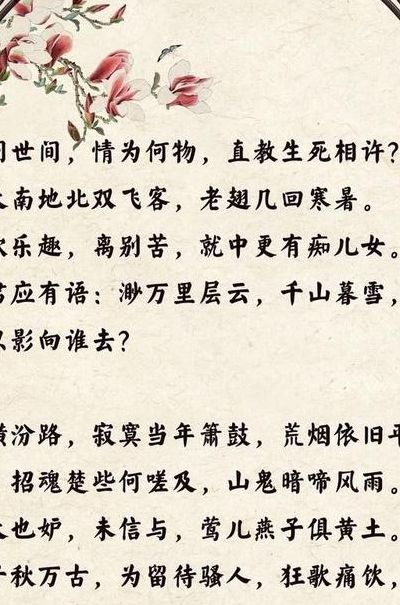 世间，情为何物，直教生死相许？
南地北双飞客，老翅几回寒暑。
乐趣，离别苦，就中更有痴儿女。
应有语：渺万里层云，千山暮雪，
影向谁去？
汾路，寂寞当年箫鼓，荒烟依旧平
招魂楚些何嗟及，山鬼暗啼风雨。
也妒，未信与，莺儿燕子俱黄土。
秋万古，为留待骚人，狂歌痛饮，